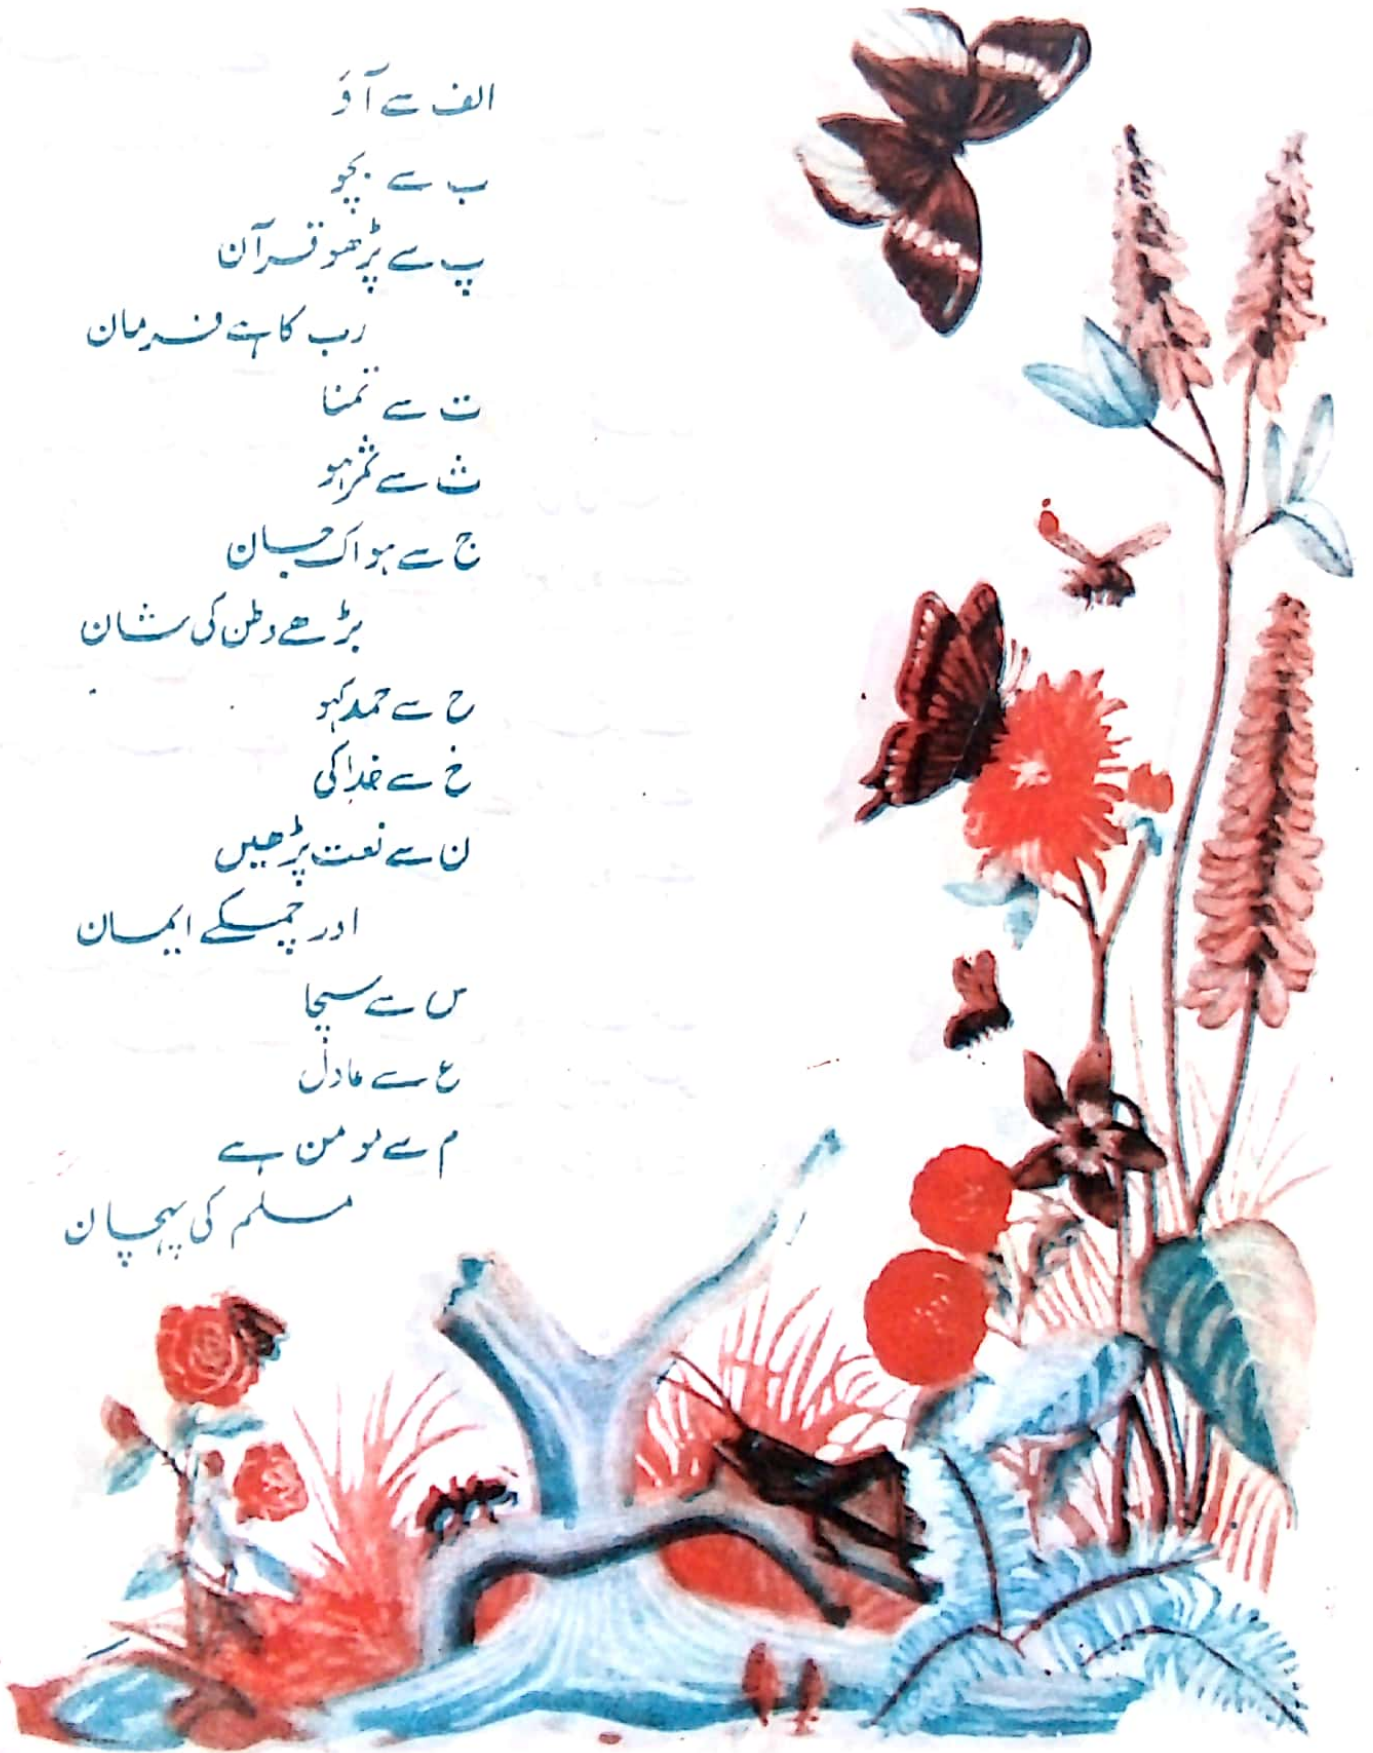 الف سے آؤ
ب سے بچو
پ سے پڑھو قرآن
رب کا ہے فرمان
ت سے تمنا
ث سے ثمر ہو
ج سے ہو اک جان
بڑھے وطن کی شان
ح سے حمد کہو
خ سے خدا کی
ن سے نعت پڑھیں
اور چمکے ایمان
س سے سچا
ع سے عادل
م سے مومن ہے
مسلم کی پہچان